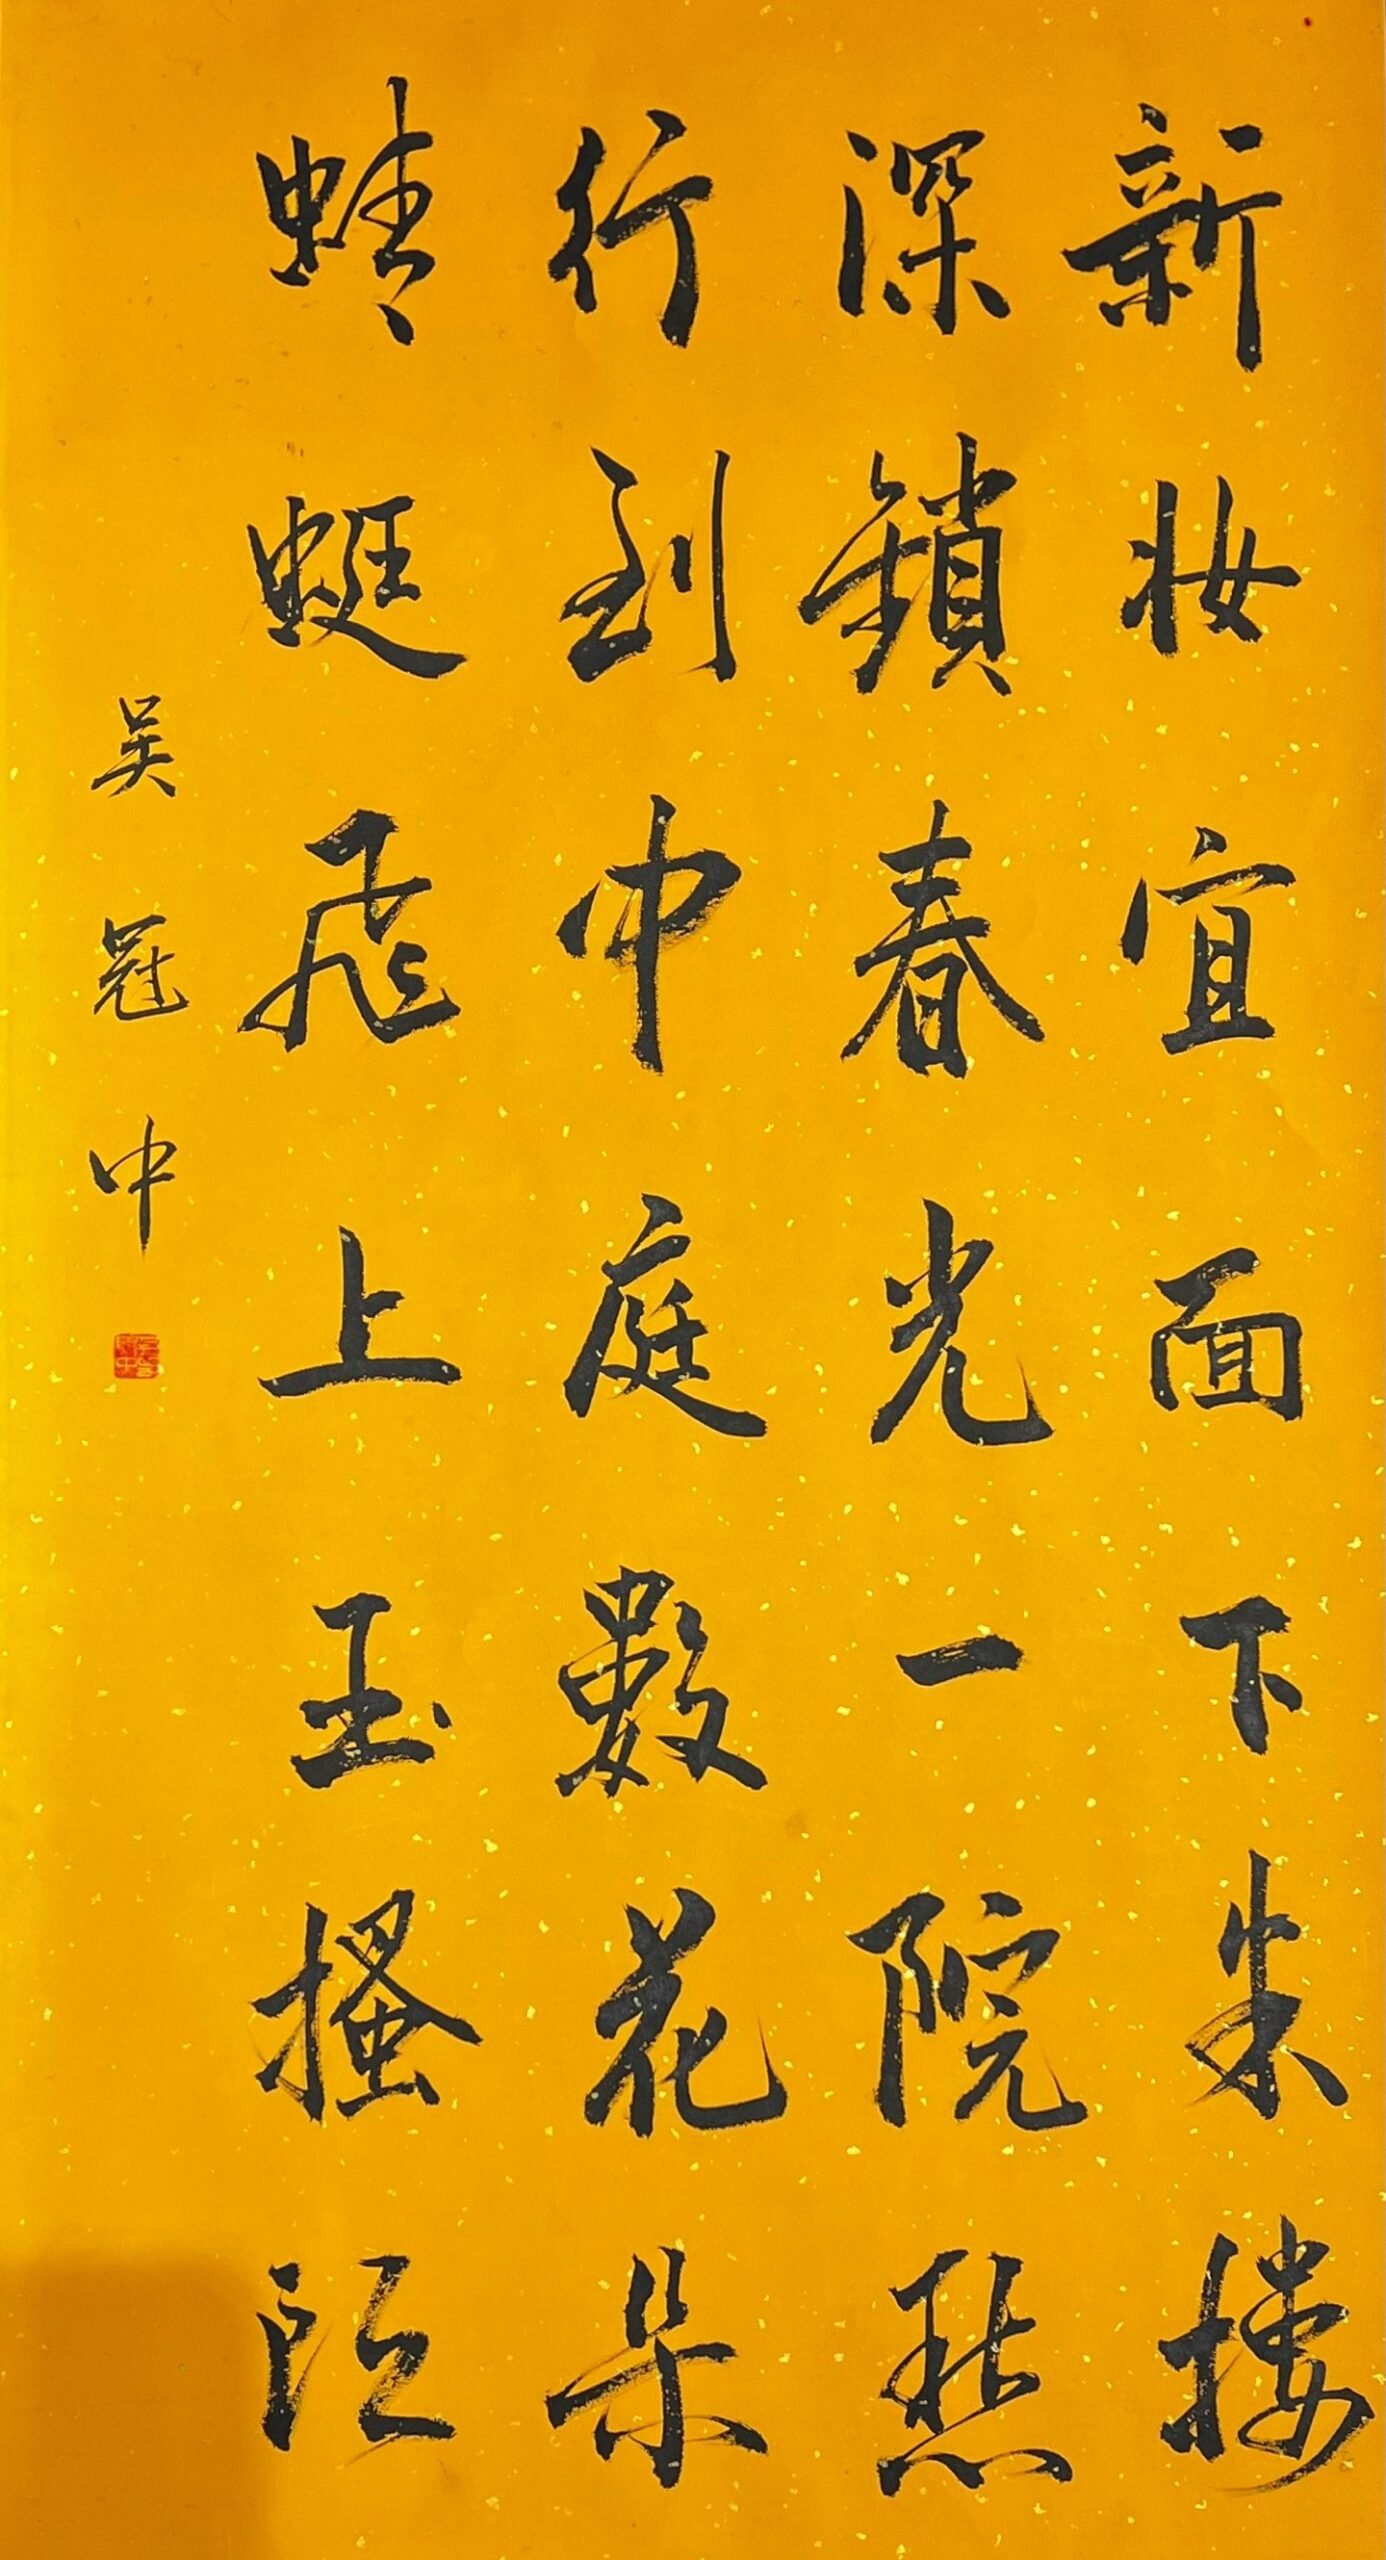 新妝宜面下朱樓
深鎖春光一院愁
行到中庭數花朵
蜻蜓飛上玉搔頭
吴冠中